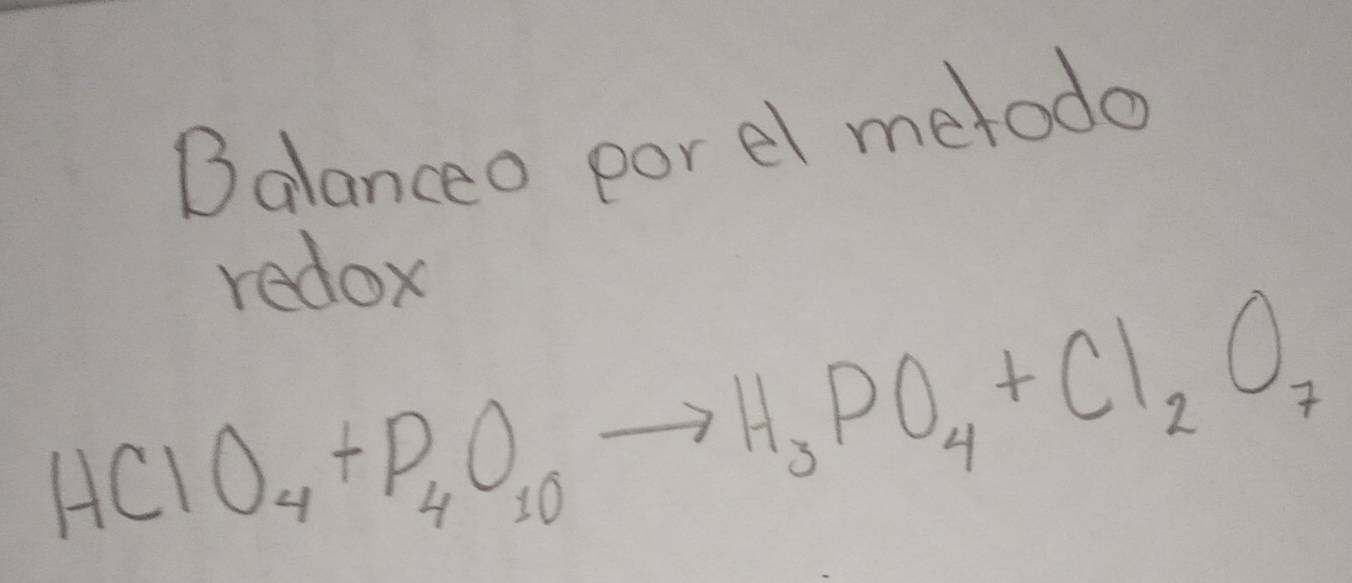 Balanceo por el metodo
redox
HClO₄ + P₄O₁₀ → H₃PO₄ + Cl₂O₇